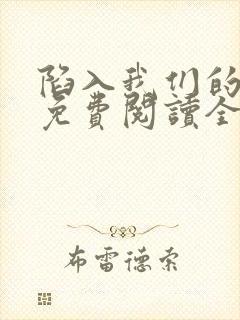 陷入我们的
免費閱讀全
布雷德索